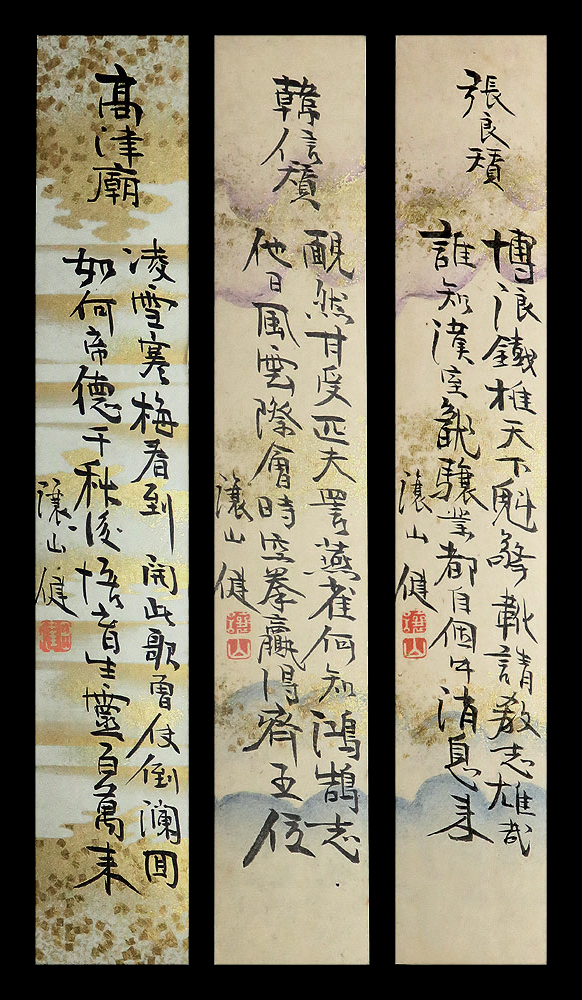 張良
博浪鐵椎天下魁擎靴請教志雄哉
誰知漢室龍驤業都自個中消息来
讓山健
讓山
韓信
靦然甘受匹夫詈燕雀何知鴻鵠志
他日風雲際會時空拳贏得齊王位
讓山健
讓山
高津廟
凌雪寒梅看到開此歌曾使倒瀾回
如何帝德千秋後育生靈百萬来
讓山健